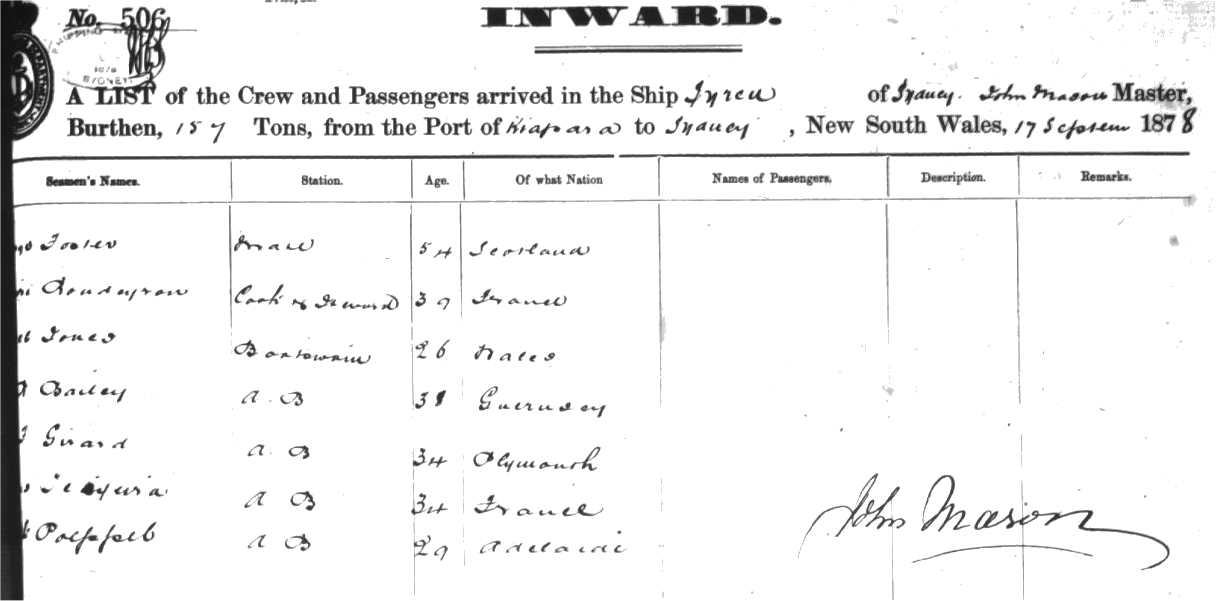 No. 506
INWARD.
SYDNEY
A LIST of the Crew and Passengers arrived in the Ship of Sydney. John Mason Master,
Burthen, 157 Tons, from the Port of Kiapara to Sydney, New South Wales, 17 Septem 1878
Seamen's Names. Station. Age. Of what Nation Names of Passengers. Description. Remarks.
Foster Mate 54 Scotland
Cook & Steward 39 France
Jones Boatswain 26 Wales
Bailey A. B 38 Guernsey
Girard A. B 34 Plymouth
A B 34 France
A B 29 Adelaide
John Mason